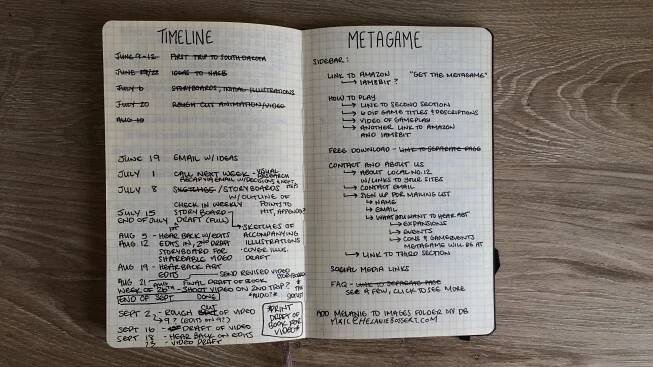 TIMELINE
JUNE 9-12 FIRST TRIP TO SOUTH DAKOTA
JUNE 19/22 IDEAS TO NACB
JULY 6 STORYBOARDS, INITIAL ILLUSTRATIONS
JULY 20 ROUGH CUT ANIMATION/VIDEO
AUG 10
JUNE 19 EMAIL W/ IDEAS
JULY 1 CALL NEXT WEEK - VISUAL RESEARCH
RECAP VIA EMAIL W/ DECISIONS & NEXT STEPS
JULY 8 SKETCHES/STORYBOARDS
W/ OUTLINE OF
CHECK IN WEEKLY POINTS TO
JULY 15 STORYBOARD HIT,
END OF JULY DRAFT (FULL) SKETCHES OF
AUG 5 - HEAR BACK W/ EDITS ACCOMPANYING
AUG 12 EDITS IN, 2ND DRAFT ILLUSTRATIONS
STORYBOARD FOR COVER ILLUS.
SHAREABLE VIDEO DRAFT
AUG 19 - HEAR BACK
EDITS SEND REVISED VIDEO STORYBOARD
AUG 21 FINAL DRAFT OF BOOK
WEEK OF 26TH - SHOOT VIDEO ON 2ND TRIP?
END OF SEPT DONE *AUDIO?*
SEPT 2 - ROUGH CUT OF VIDEO
9? (EDITS ON 9?)
SEPT 16 - DRAFT OF VIDEO
SEPT 18 - HEAR BACK ON EDITS
23 - VIDEO DRAFT
*PRINT
DRAFT OF
BOOK FOR
VIDEO*
METAGAME
SIDEBAR:
LINK TO AMAZON "GET THE METAGAME"
IAM8BIT?
HOW TO PLAY
LINK TO SECOND SECTION
6 DIF GAME TITLES & DESCRIPTIONS
VIDEO OF GAMEPLAY
ANOTHER LINK TO AMAZON
AND IAM8BIT
FREE DOWNLOAD - LINK TO SEPARATE PAGE
CONTACT AND ABOUT US
ABOUT LOCAL NO.12
W/ LINKS TO YOUR SITES
CONTACT EMAIL
SIGN UP FOR MAILING LIST
NAME
EMAIL
WHAT YOU WANT TO HEAR ABT
EXPANSIONS
EVENTS
CONS & GAME EVENTS
METAGAME WILL BE AT
LINK TO THIRD SECTION
SOCIAL MEDIA LINKS
FAQ - LINK TO SEPARATE PAGE
SEE A FEW, CLICK TO SEE MORE
ADD MELANIE TO IMAGES FOLDER ON DB